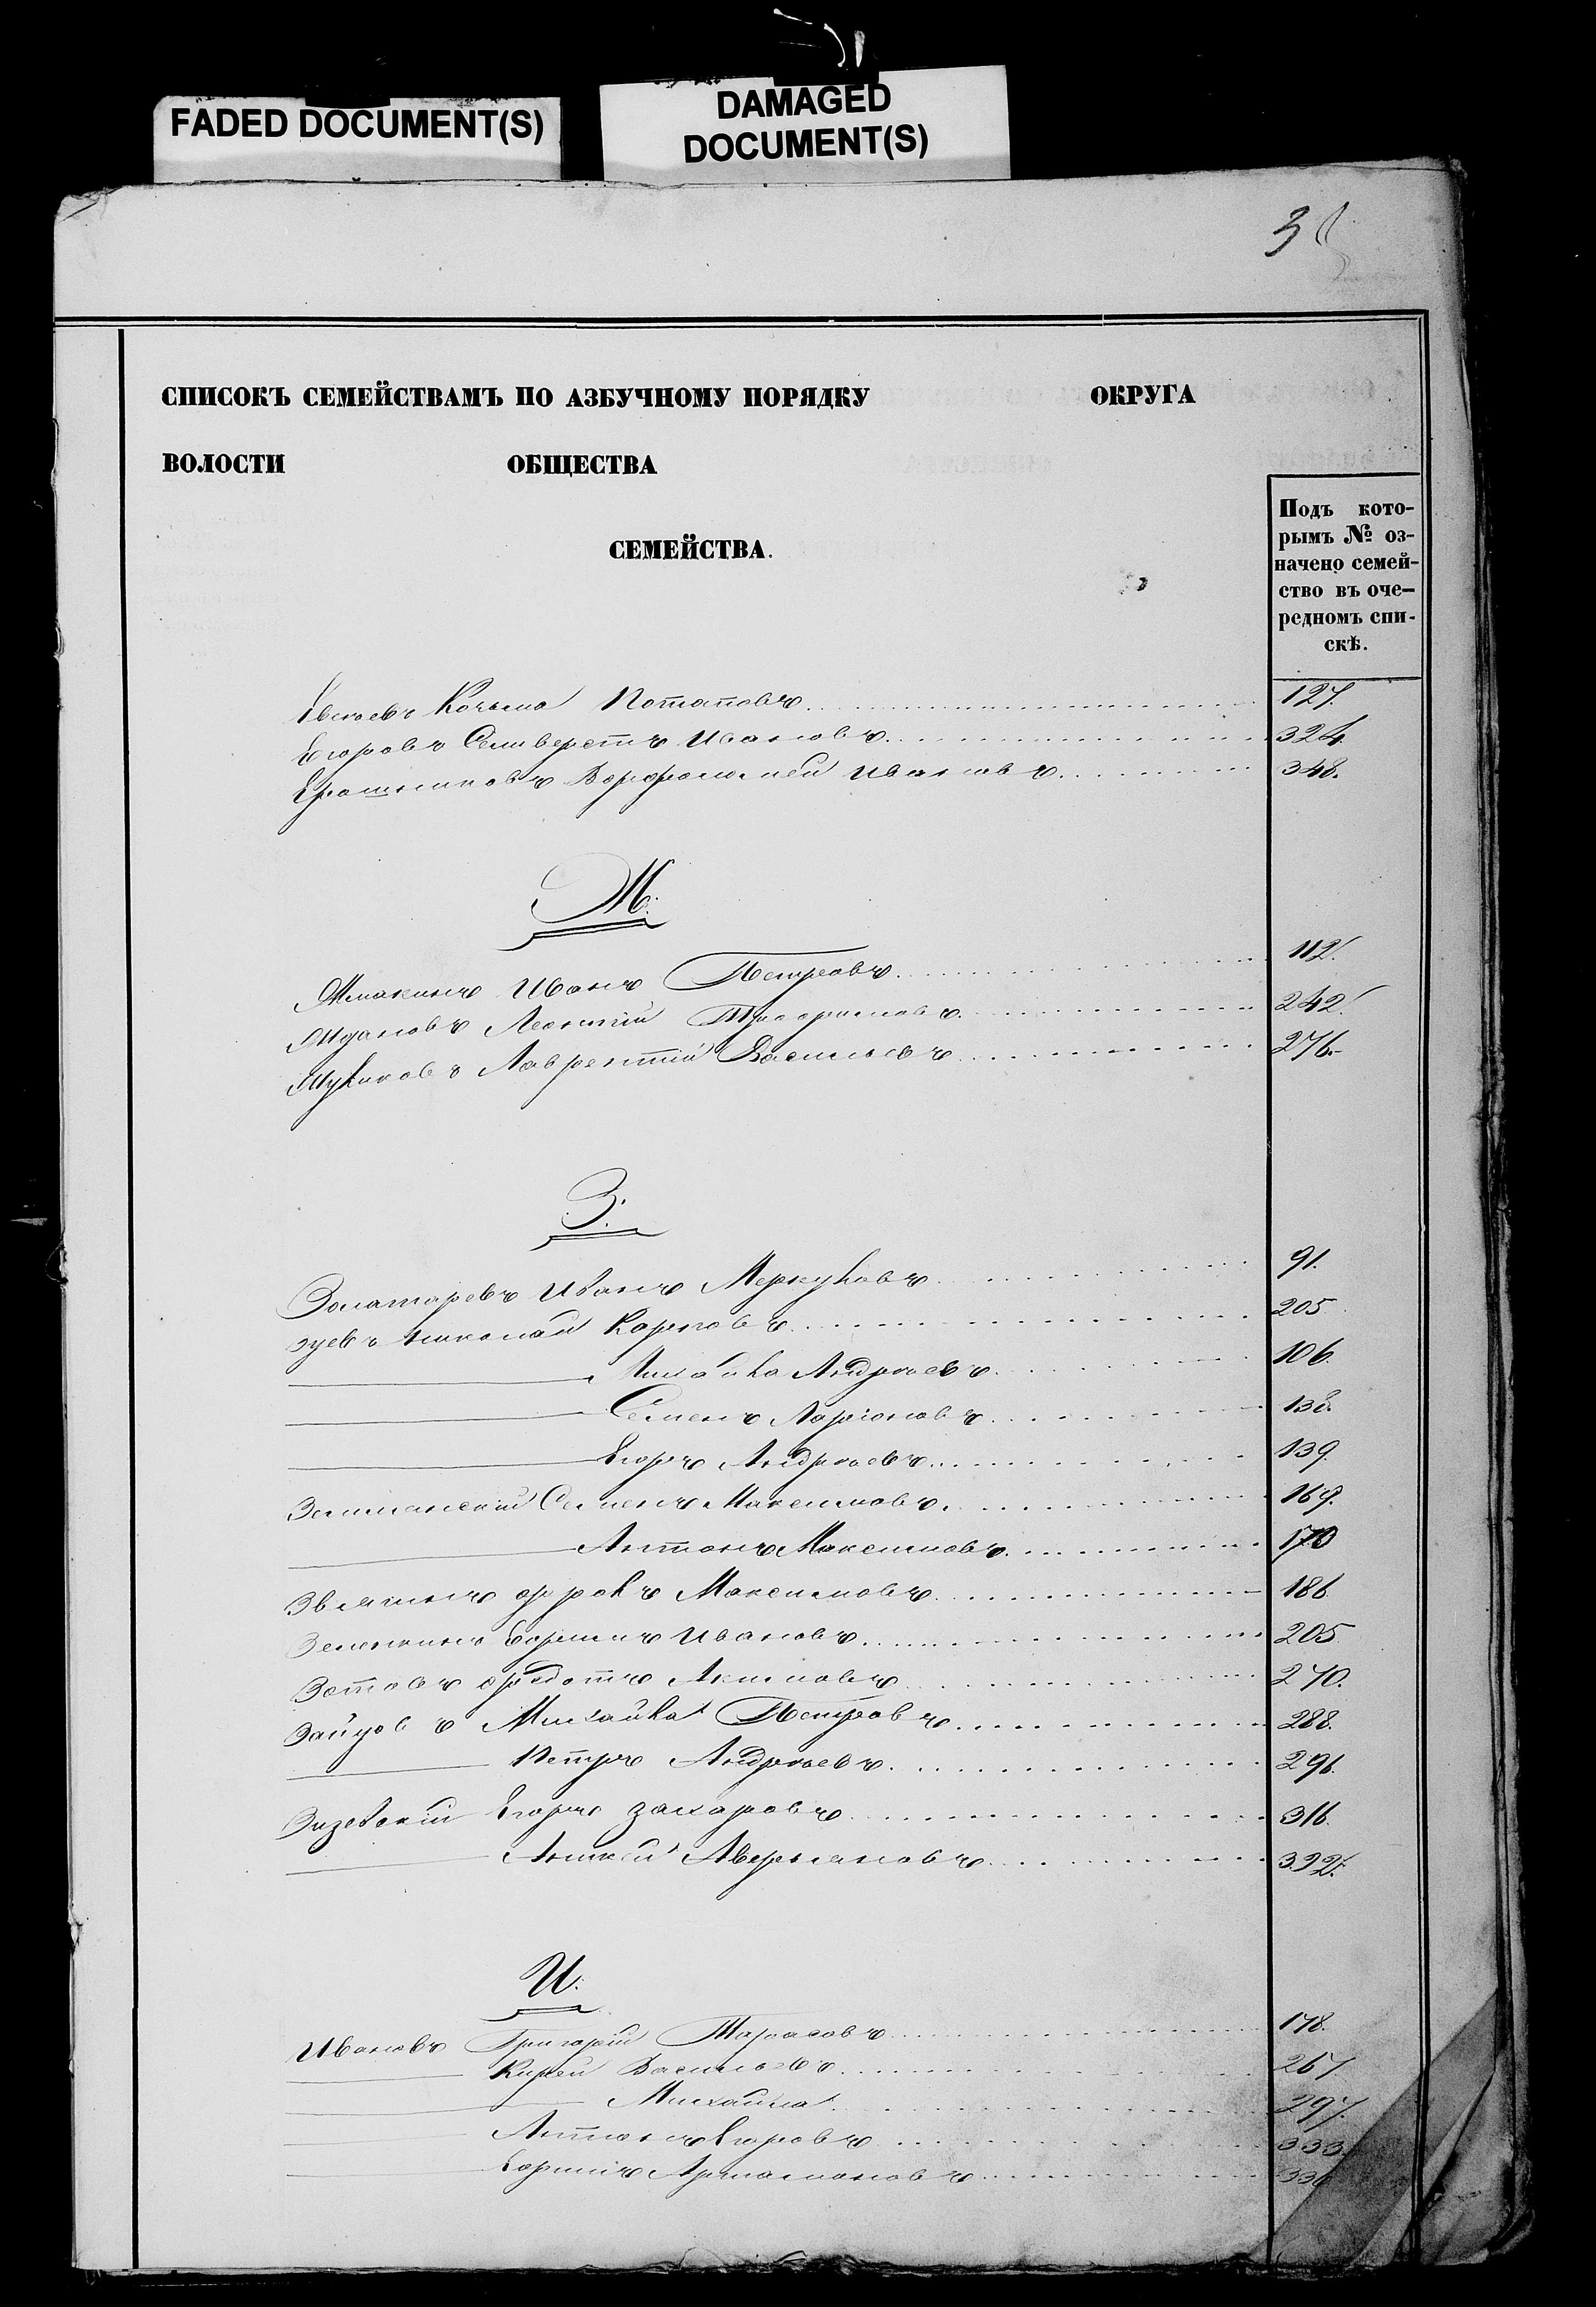 FADED DOCUMENT(S)
DAMAGED
DOCUMENT(S)
3
СПИСОКЪ СЕМЕЙСТВАМЪ ПО АЗБУЧНОМУ ПОРЯДКУ ОКРУГА
ВОЛОСТИ ОБЩЕСТВА
СЕМЕЙСТВА.
Подъ кото-
рымъ № оз-
начено семей-
ство въ оче-
редномъ спи-
скѣ.
Козьма Потаповъ 127.
Егоровъ Селиверстъ Ивановъ 324.
Ивановъ 348.
Ж.
Жмакинъ Иванъ Петровъ 112.
Ждановъ Леонтий Трофимовъ 242.
Жуликовъ Лаврентий Васильевъ 276.
З.
Золотаревъ Иванъ Меркуловъ 91.
Зуевъ Николай Карповъ 205
Михайла Андреевъ 106.
Семенъ Ларіоновъ 138.
Егоръ Андреевъ 139.
Семенъ Максимовъ 169.
Антонъ Максимовъ 170
Звягинъ Фролъ Максимовъ 186.
Зеленкинъ Ефимъ Ивановъ 205
Зотовъ Федотъ Акимовъ 270.
Зайцовъ Михайла Петровъ 288.
Петръ Андреевъ 296.
Егоръ Захаровъ 316.
Аверьяновъ 392.
И.
Ивановъ Григорій Тарасовъ 178.
Кирей Васильевъ 267.
Михайла 297.
Антонъ Егоровъ 333.
Артамоновъ